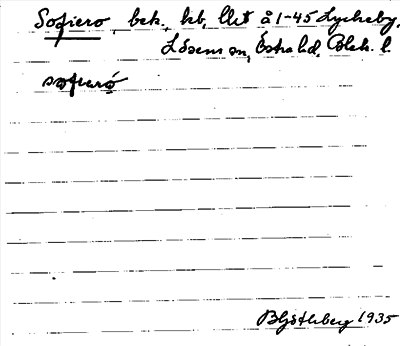 Sofiero, bek., kb, llst å 1-45 Lyckeby,
Lösen sn, Östra hd, Blek. l.
sofieró
B Hjöthberg 1935